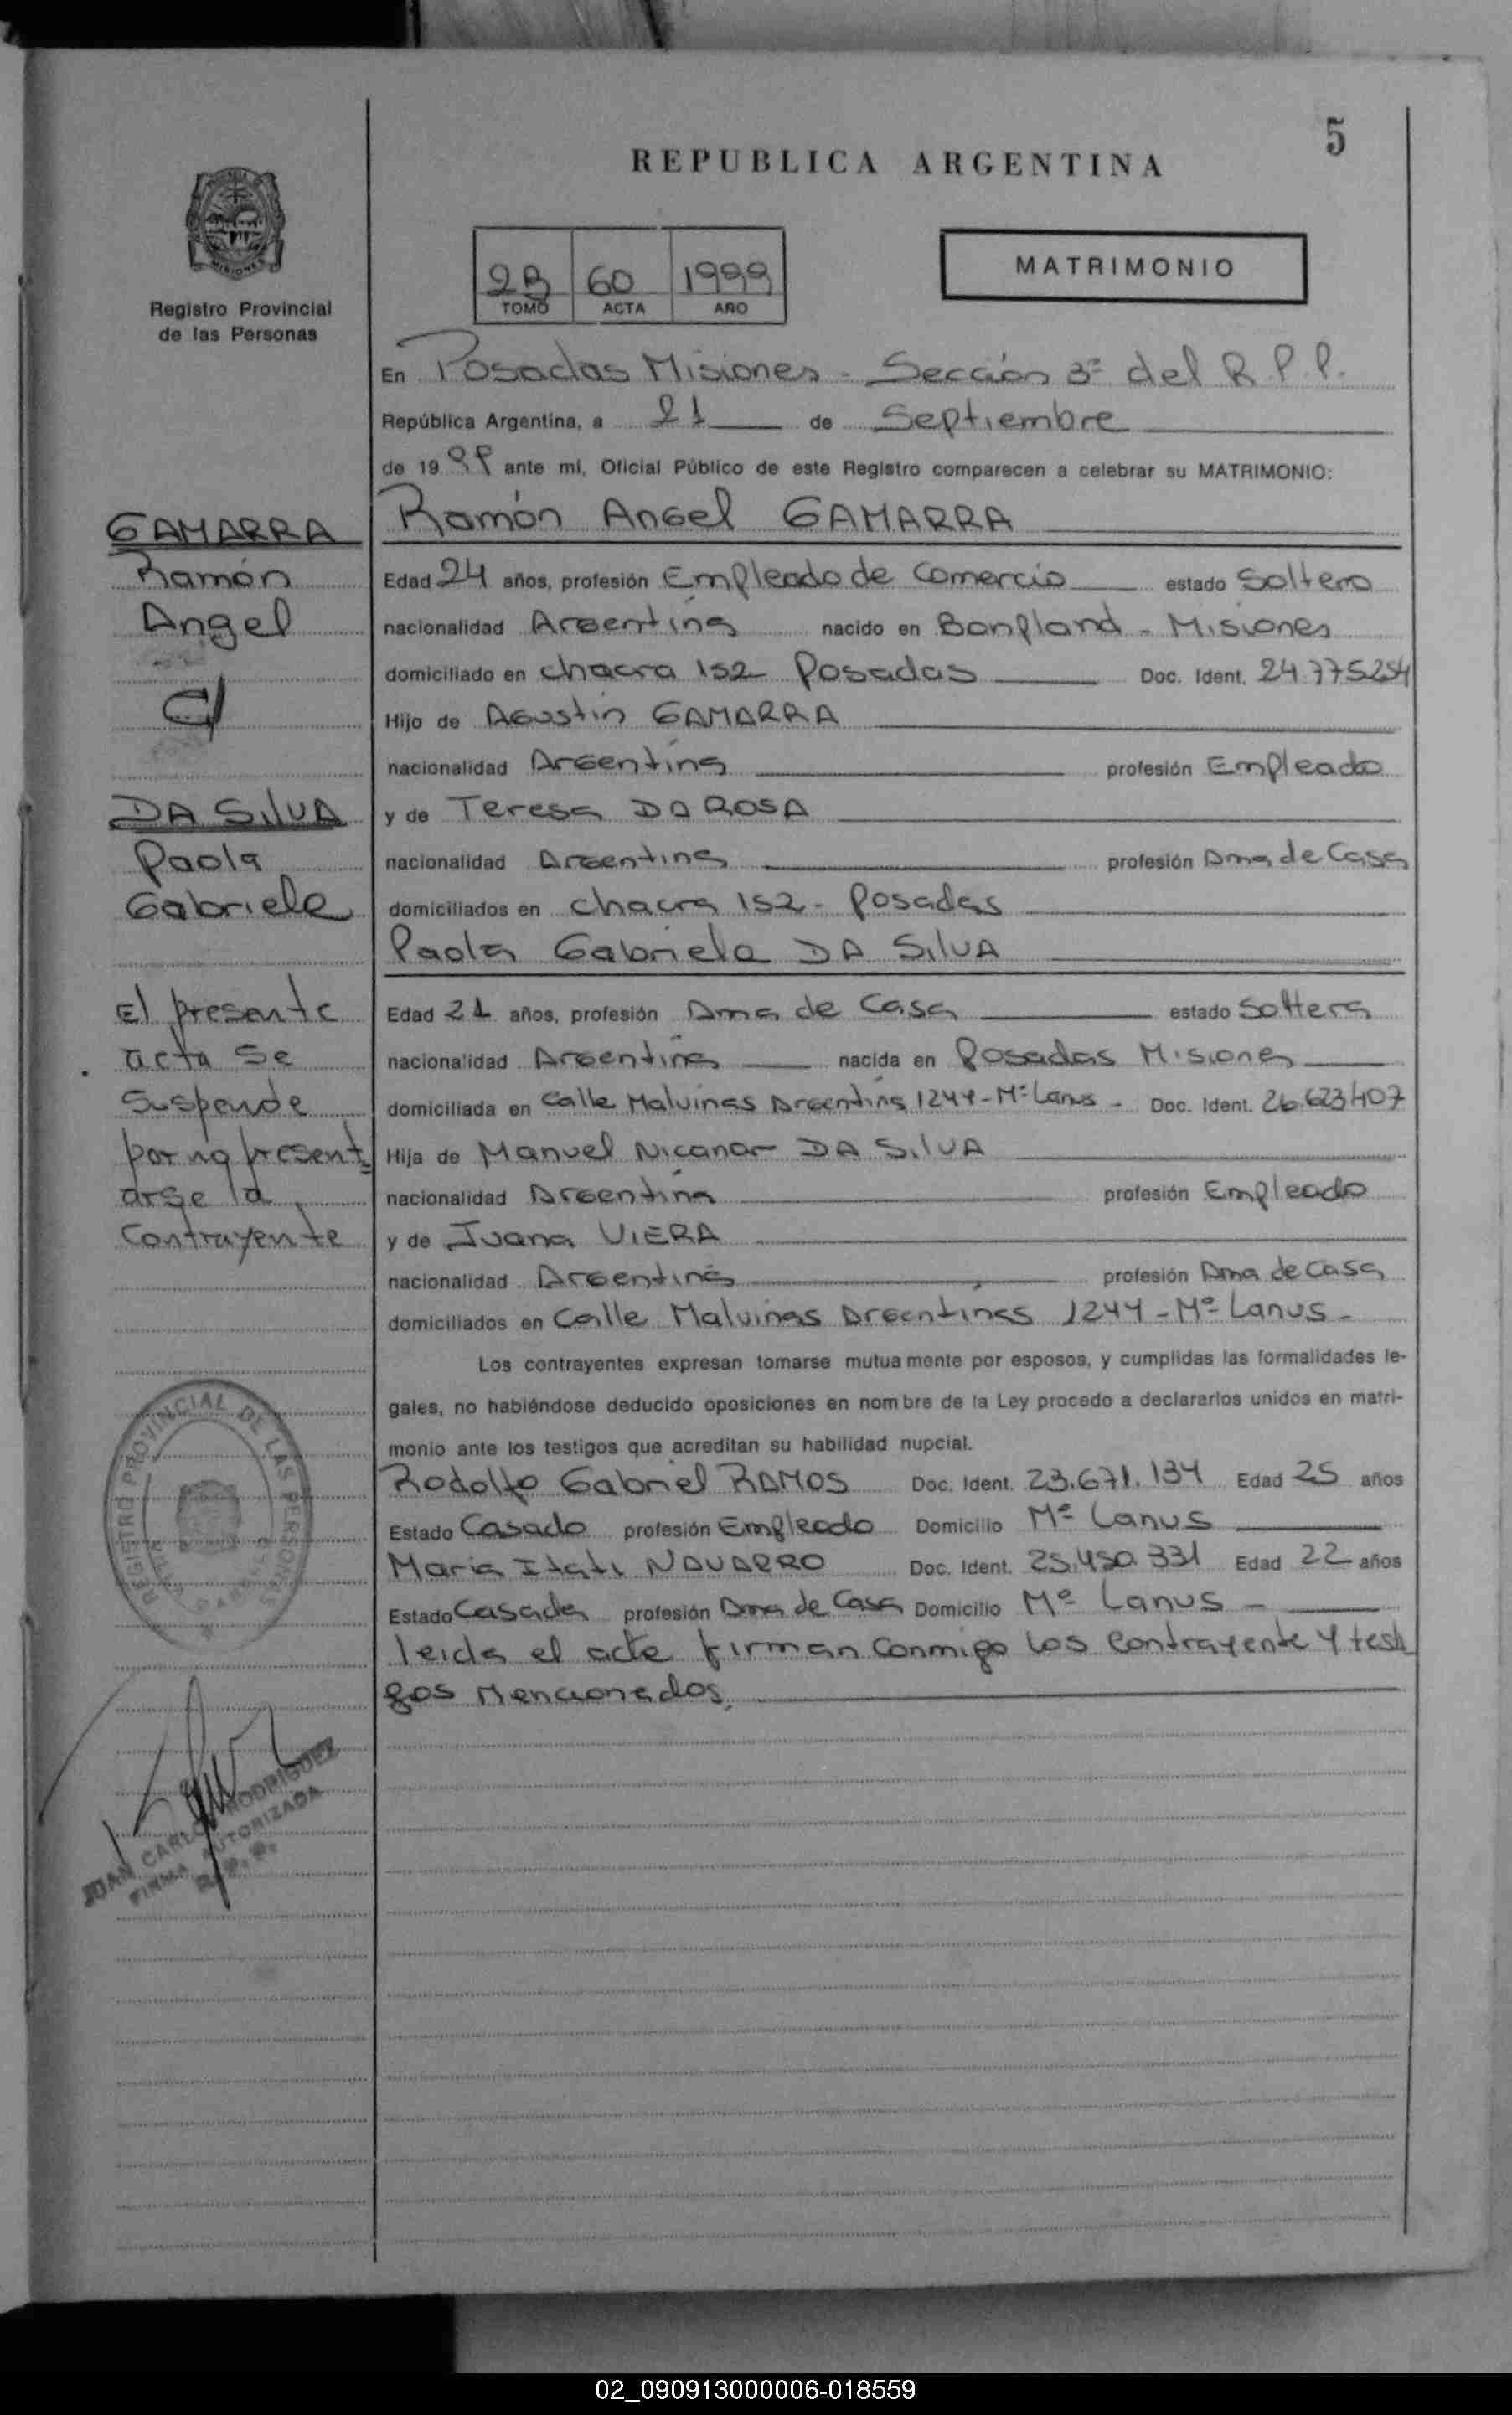 5
REPUBLICA ARGENTINA
MISIONES
Registro Provincial
de las Personas
2B 60 1999
TOMO ACTA AÑO
MATRIMONIO
En Posadas Misiones - Sección 3ª del R.P.P.
República Argentina, a 21 de Septiembre
de 19 99 ante mí, Oficial Público de este Registro comparecen a celebrar su MATRIMONIO:
Ramón Angel GAMARRA
Edad 24 años, profesión Empleado de Comercio estado Soltero
nacionalidad Argentina nacido en Bonpland - Misiones
domiciliado en chacra 152 Posadas Doc. Ident. 24.775254
Hijo de Agustin GAMARRA
nacionalidad Argentina profesión Empleado
y de Teresa DA ROSA
nacionalidad Argentina profesión Ama de Casa
domiciliados en chacra 152 - Posadas
Paola Gabriela DA SILVA
Edad 21 años, profesión Ama de Casa estado Soltera
nacionalidad Argentina nacida en Posadas Misiones
domiciliada en Calle Malvinas Argentina 1244 - Mº Lanus - Doc. Ident. 26.623407
Hija de Manuel Nicanor DA SILVA
nacionalidad Argentina profesión Empleado
y de Juana VIERA
nacionalidad Argentina profesión Ama de Casa
domiciliados en Calle Malvinas Argentinas 1244 - Mº Lanus -
Los contrayentes expresan tomarse mutuamente por esposos, y cumplidas las formalidades le-
gales, no habiéndose deducido oposiciones en nombre de la Ley procedo a declararlos unidos en matri-
monio ante los testigos que acreditan su habilidad nupcial.
Rodolfo Gabriel RAMOS Doc. Ident. 23.671.134 Edad 25 años
Estado Casado profesión Empleado Domicilio Mº Lanus
Maria Itati NAVARRO Doc. Ident. 25.450.331 Edad 22 años
Estado Casada profesión Ama de Casa Domicilio Mº Lanus -
leida el acta firman conmigo los contrayente y testi
gos Mencionados.
GAMARRA
Ramón
Angel
c/
DA SILVA
Paola
Gabriela
El presente
acta se
Suspende
por no present
arse la
Contrayente
REGISTRO PROVINCIAL DE LAS PERSONAS
JUAN CARLOS RODRIGUEZ
FIRMA AUTORIZADA
R. P. P.
02_090913000006-018559